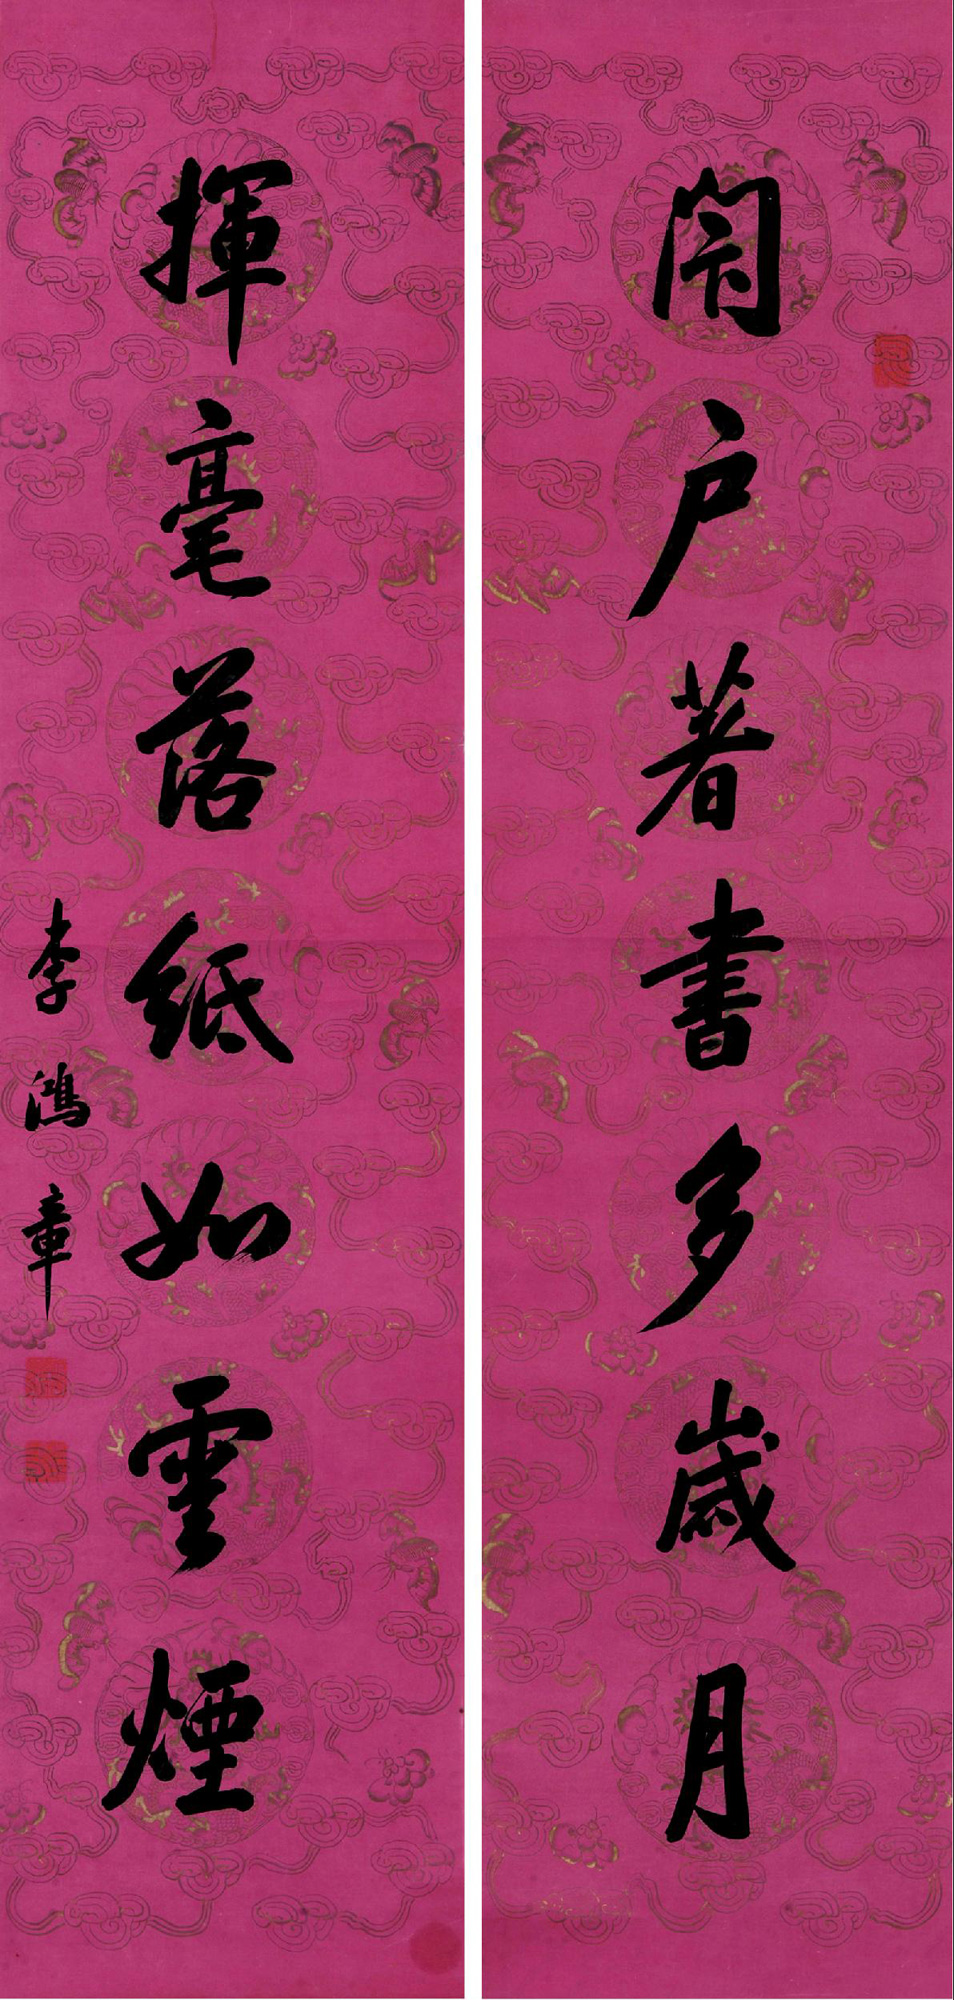 閉戶著書多歲月
揮毫落紙如雲煙
李鴻章